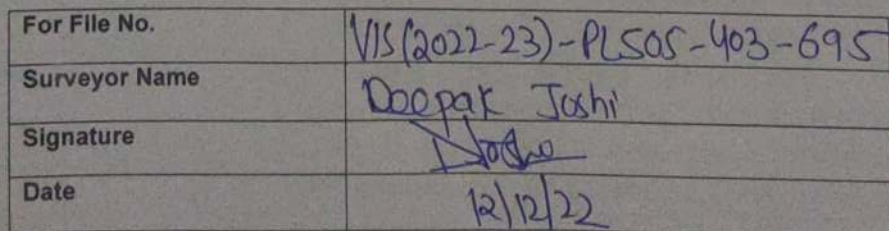 For File No. VIS(2022-23)-PL505-403-695
Surveyor Name Deepak Joshi
Signature
Date 12/12/22